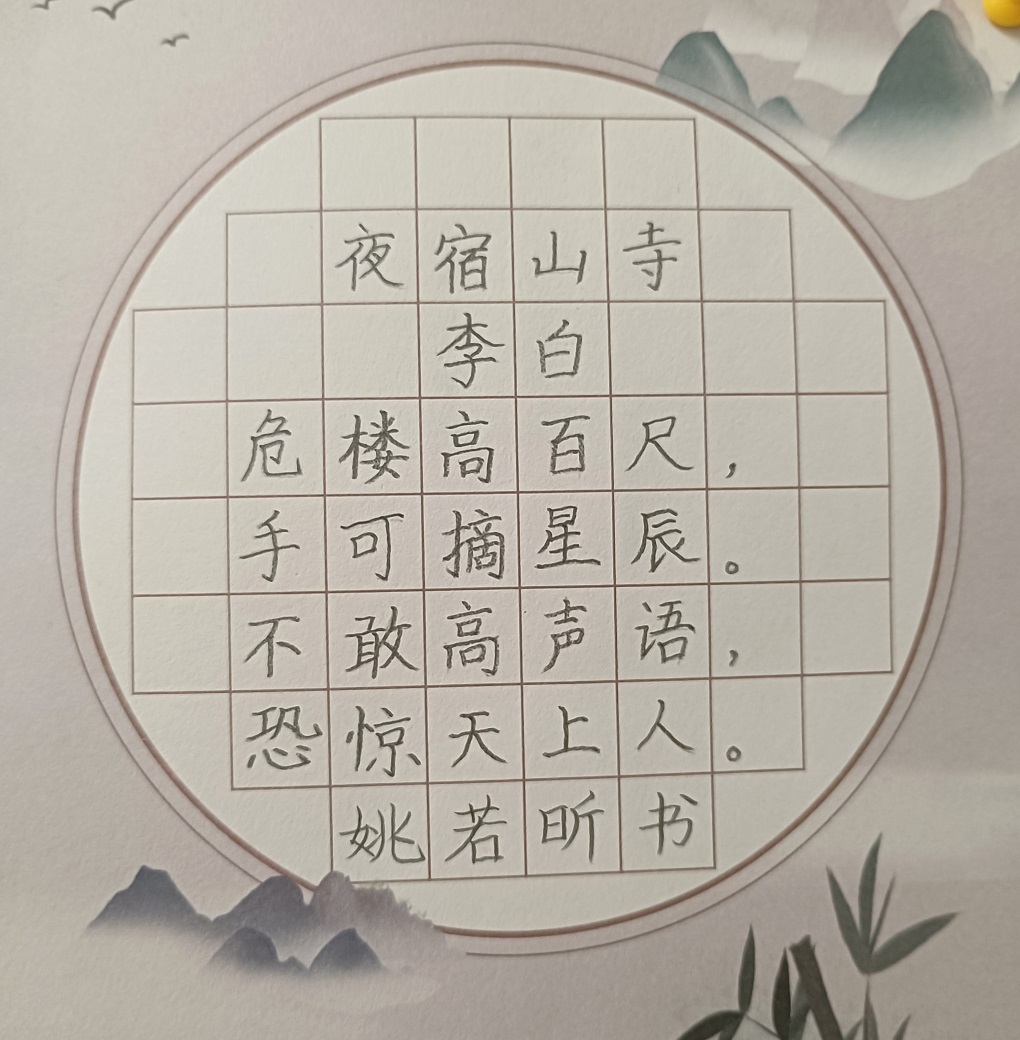 夜宿山寺
李白
危楼高百尺，
手可摘星辰。
不敢高声语，
恐惊天上人。
姚若昕书